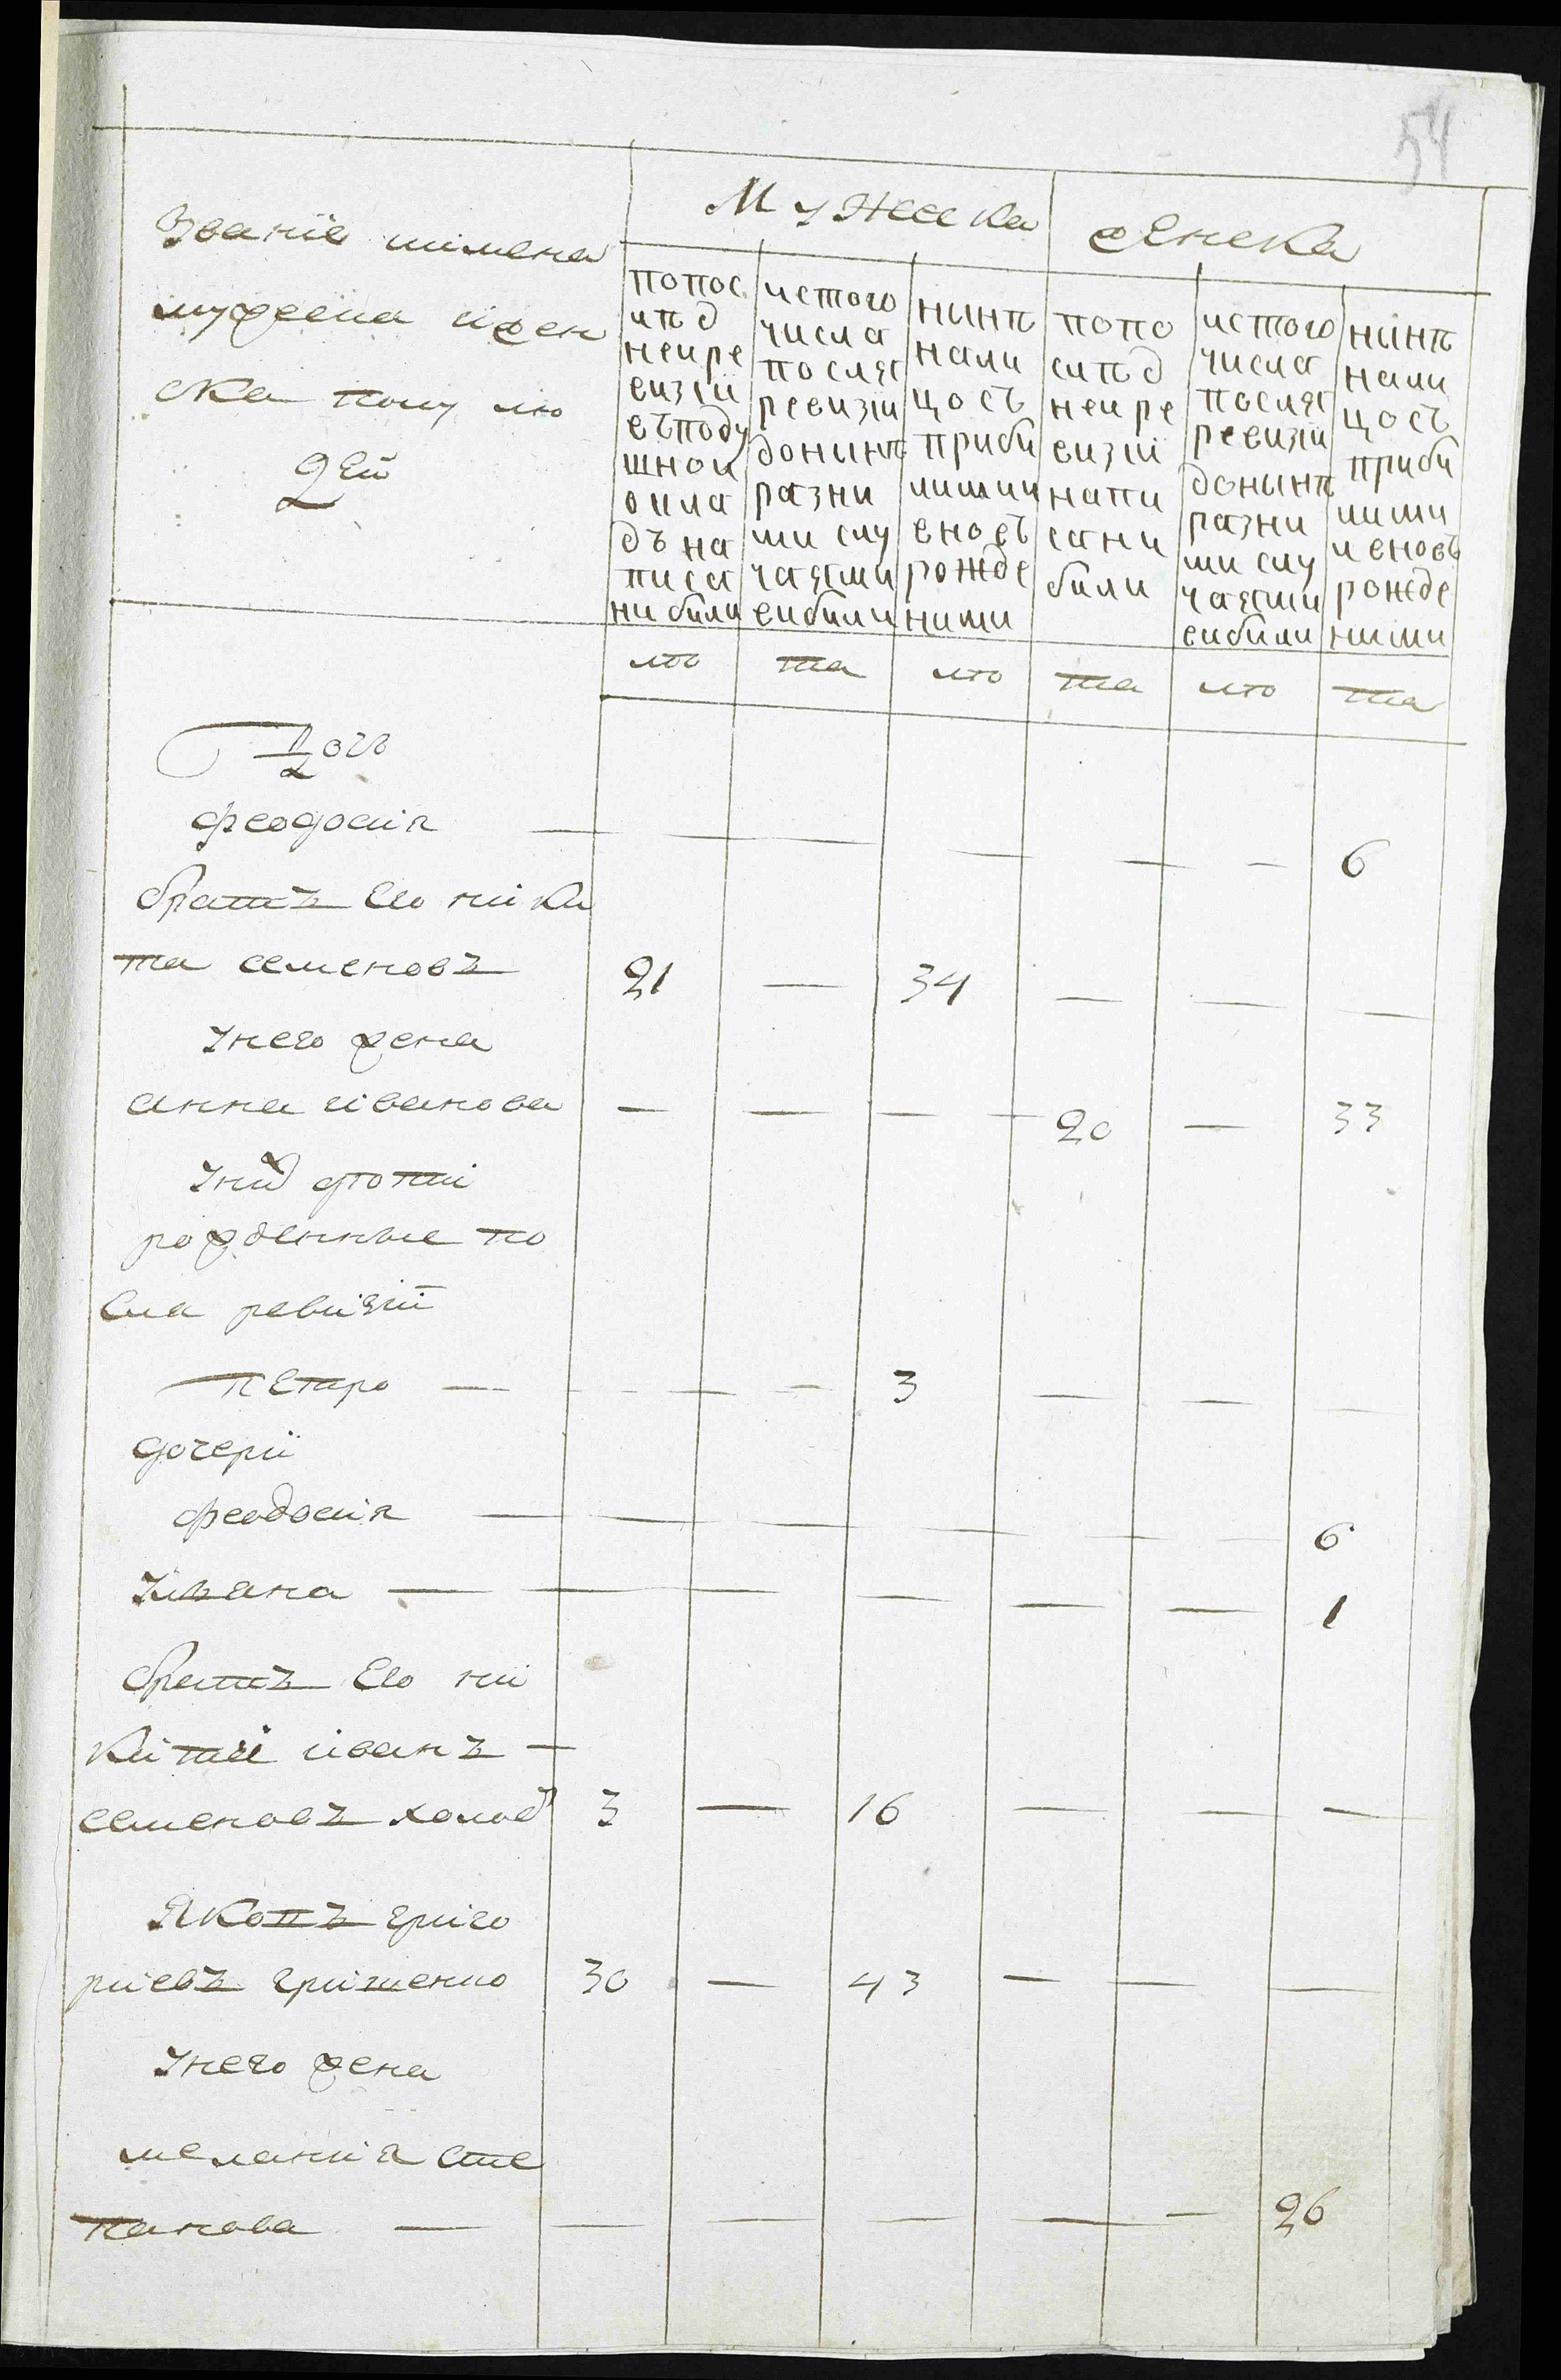 54
Званіе иимена
мужеска ижен
ска полу лю
дей
Мужеска
женска
попос
лѣд
неире
визіи
въподу
шнои
окла
дъ на
писа
ни били
истого
числа
послѧ
ревизіи
донынѣ
разни
ми слу
чаѧми
вибили
нынѣ
нали
цосъ
приби
лимии
вновъ
рожде
ними
попо
слѣд
неи ре
визіи
напи
сани
били
истого
числа
послѧ
ревизіи
донынѣ
разни
ми слу
чаѧми
вибили
нинѣ
нали
цосъ
приби
лими
и вновъ
рожде
ними
лѣ
та
лѣ
та
лѣ
та
дочь
феодосія — — — — — — 6
братъ его ники
та семеновъ 21 — 34 — — —
унего жена
анна иванова — — — 20 — 33
унид дѣти
рожденные по
сла ревизіи
петро — — — 3 — — —
дочерїи
феодосія — — — — — — 6
уляна — — — — — — 1
братъ его ни
киты иванъ —
семеновъ холод 3 — 16 — — —
Якопъ григо
риевъ гришенко 30 — 43 — — —
унего жена
меланиа сте
панова — — — — — — 26